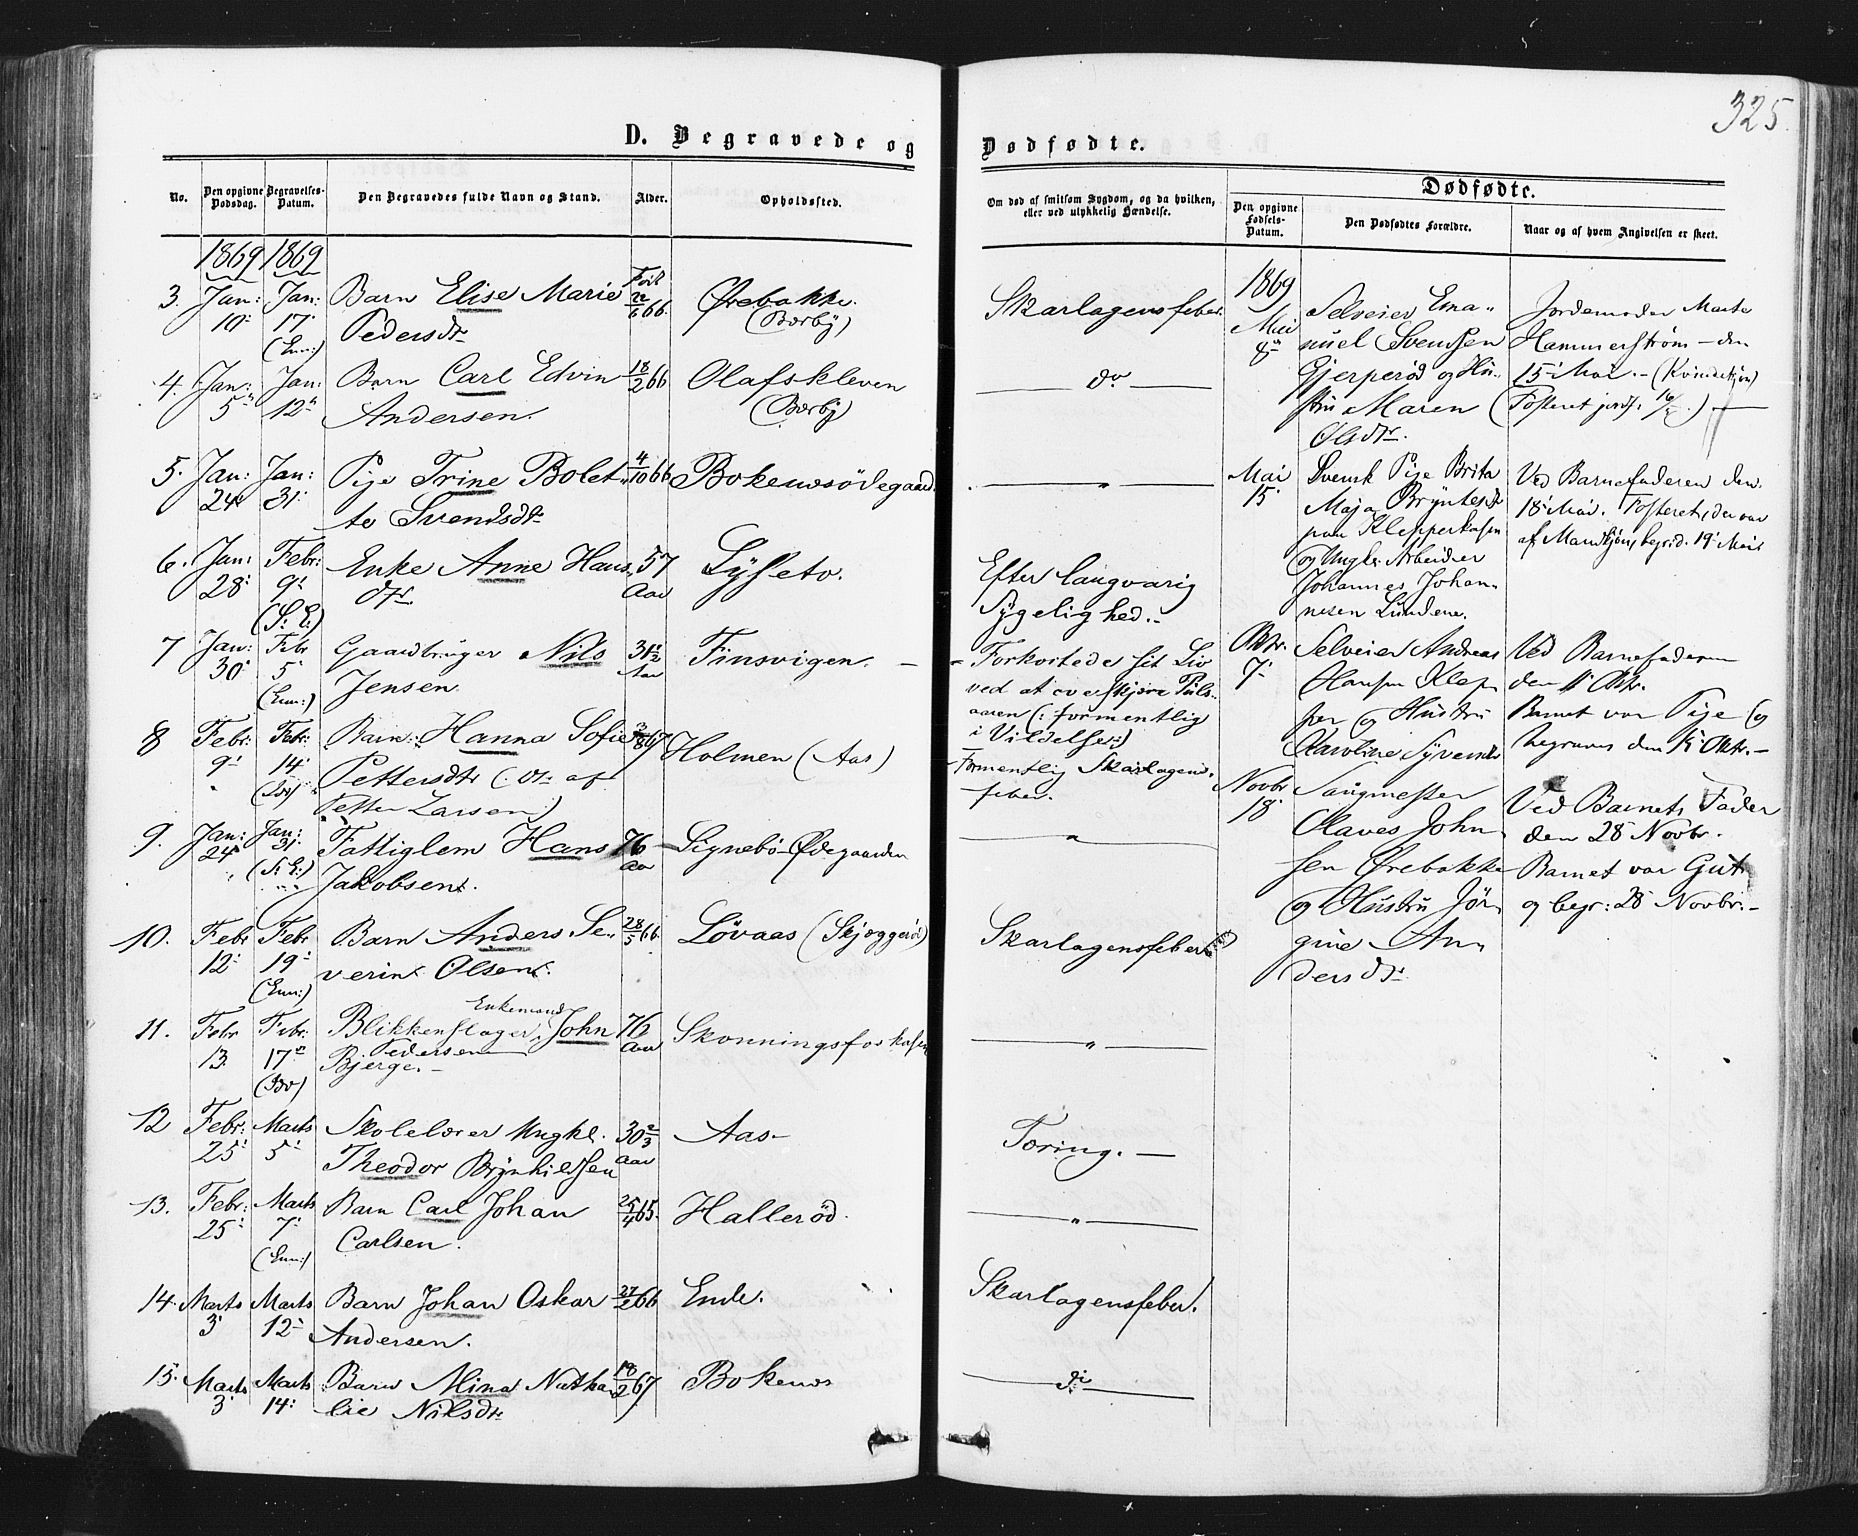 325.
D. Begravede og Dødfødte.
No.
Den opgivne Dødsdag.
Begravelses-Datum.
Den Begravedes fulde Navn og Stand.
Alder.
Opholdssted.
Om død af smitsom Sygdom, og da hvilken, eller ved ulykkelig Hændelse.
Dødfødte.
Den opgivne Fødsels-Datum.
Den Dødfødtes Forældre.
Naar og af hvem Angivelsen er skeet.
1869 1869
3. Jan: 10 Jan: 17 (Enn:) Barn Elise Marie Født 22/6 66. Ørebakke. Skarlagensfeber
Pedersdtr (Bærby)
4. Jan: 5 Jan: 12 Barn Carl Edvin 18/2 66 Olafskleven do
Andersen. (Bærby)
5. Jan: 24 Jan: 31 Pige Trine Bolet- 4/10 66 Bokenesødegaard "
te Svendsdtr
6. Jan: 28 Febr: 9 (S: E:) Enke Anne Hans 57 Aar Lysetv. Efter langvarig
dtr. Sygelighed.
7 Jan: 30 Febr 5 (Enn:) Gaardbruger Nils 31 1/2 Aar Finsvigen. - Forkortede sit Liv
Jensen. ved at overskjære Puls-
aaren (: formentlig
i Vildelse:)
8 Febr: 9 Febr: 14 Barn: Hanna Sofie 3/8 67 Holmen (Aas) Formentlig Skarlagens-
Pettersdtr (: Dtr af feber.
Petter Larsen:)
9. Jan: 24 Jan: 31 (S: E:) Fattiglem Hans 76 Aar Signebö-Ødegaarden "
Jakobsen.
10. Febr 12 Febr 19 (Enn:) Barn Anders Se- 28/5 66 Løvaas (Skjøggerød) Skarlagensfeber
verin Olsen.
11. Febr 13. Febr. 17 Enkemand
Blikkenslager John 76 Aar Skonningsfoskasen "
Pedersen
Bjerge.
12 Febr: 25 Marts 5 Skolelærer Ungkl. 30 2/3 Aar Aas- Tæring.
Theodor Brynhildsen
13. Febr: 25 Marts 7 (Enn:) Barn Carl Johan 25/4 65. Hallerød. "
Carlsen.
14. Marts 3 Marts 12 Barn Johan Oskar 27/2 66 Ende. Skarlagensfeber.
Andersen.
15. Marts 3 Marts 14 Barn Mina Natha 18/2 67 Bokenes do
lie Nilsdtr
1869
Mai 8 Selveier Ema-
nuel Svensen
Gjerperød og Hu-
stru Maren
Olsdtr.
Jordemoder Marte
Hammerstrøm - den
15 Mai. - (Kvindekjøn)
(Fosteret jordf. 16/5.)
Mai 15 Svensk Pige Brita
Maja Bryntesdtr
paa Klepperkasen
og Ungk: Arbeider
Johannes Johan-
nesen Lundene.
Ved Barnefaderen den
18 Mai. Fosteret, der var
af Mandkjøn, begrd. 19 Mai
Oktr. 7 Selveier Andreas
Hansen Klep
per og Hustru
Karoline Syversdtr
Ved Barnefaderen
den 11 Oktr.
Barnet var Pige og
begraves den 15 Oktr. -
Novbr 18 Sangmester
Olaves John
sen Ørebakke
og Hustru Jør
gine An
dersdtr
Ved Barnets Fader
den 28 Novbr.
Barnet var Gut
og begr: 28 Novbr. -